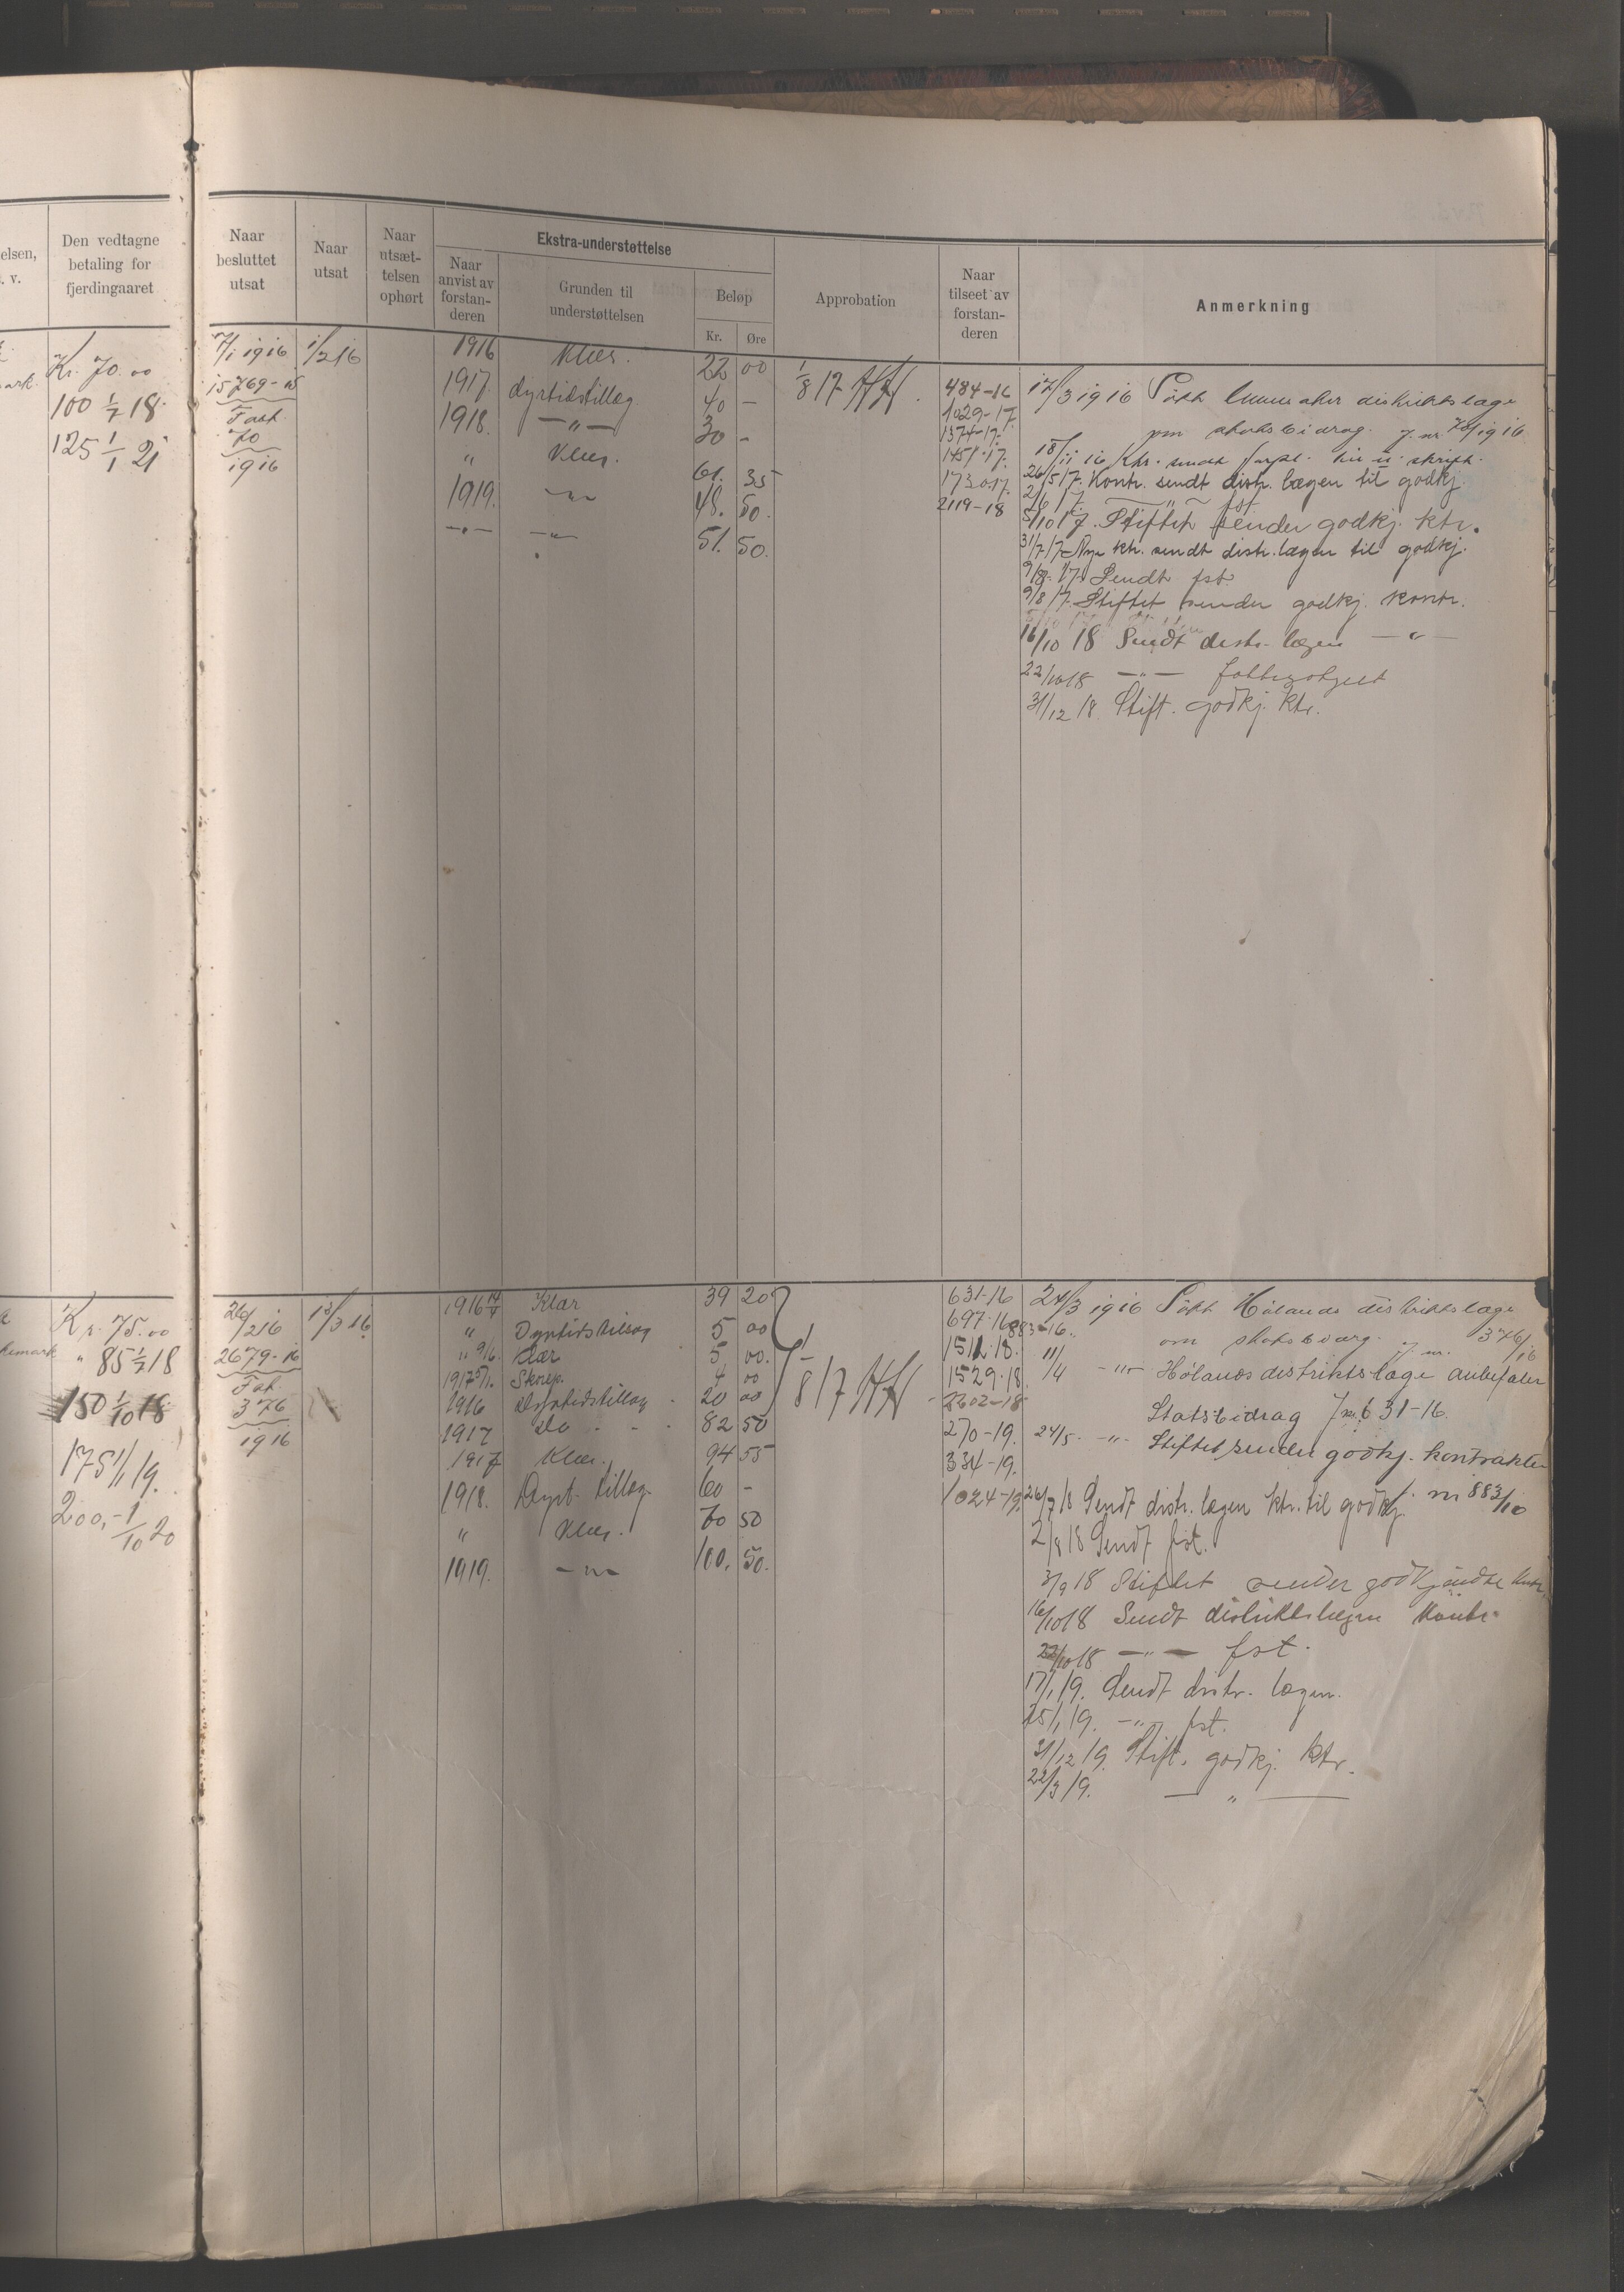 elsen,
. v.
Den vedtagne
betaling for
fjerdingaaret
Naar
besluttet
utsat
Naar
utsat
Naar
utsæt-
telsen
ophørt
Ekstra-understøttelse
Naar
anvist av
forstan-
deren
Grunden til
understøttelsen
Beløp
Kr.
Øre
Approbation
Naar
tilseet av
forstan-
deren
Anmerkning
Kr. 70.00
100 1/7 18.
125 1/1 21
7/1 1916
15769-15
70
1916
1/2 16
1916 Klær. 22 00
1917. Dyrtidstillæg 40 -
1918. -"- 30 -
" Klær. 61. 35
1919. -"- 48. 50.
-"- -"- 51. 50.
1/8 17
484-16
1029-17.
1374-17.
1451-17.
1730-17.
2119-18
17/3 1916 Søkt distriktslæge
om statsbidrag. J. nr. 70/1916
18/11 16 Ktr. sendt
26/5 17. Kontr. sendt distr. lægen til godkj.
2/6 17. " fst.
5/10 17. Stiftet sender godkj. ktr.
31/7 17 Nye ktr. sendt distr. lægen til godkj.
9/8 17. Sendt fst.
9/8 17. Stiftet sender godkj. kontr.
16/10 18 Sendt distr. lægen -"-
22/10 18 -"-
31/12 18. Stift. godkj. ktr.
Kr. 75.00
" 85 1/7 18
150 1/10 18
175 1/1 19.
200,- 1/10 20
26/2 16
2679-16
376
1916
13/3 16
1916 Klær 39 20
" Dyrtidstillæg 5 00
" 9/6 Klær 5 00.
1917 Skorep. 4 00
1916 Dyrtidstillæg 20 00
1917 do - - 82 50
1917 Klær. 94 55
1918. Dyrt. tillæg. 60 -
" Klær. 70 50
1919. -"- 100. 50.
1/8 17
631-16
697-16 883-16.
1511-18.
1529-18
2602-18
270-19.
334-19.
1024-19.
24/3 1916 Søkt Hølands distriktslæge
om statsbidrag. J. nr. 376/16
11/4 -"- Hølands distriktslæge anbefaler
Statsbidrag J nr. 631-16.
24/5 -"- Stiftet sender godkj. kontrakter
J. nr 883/16
26/7 18 Sendt distr. lægen ktr. til godkj.
2/8 18 Sendt fst.
3/9 18 Stiftet sender godkjendte kontr.
16/10 18 Sendt distriktslægen kontr.
22/10 18 -"- fst.
17/1 19. Sendt distr. lægen.
25/1 19. -"- fst.
31/12 19. Stift. godkj. ktr.
22/3 19. -"-